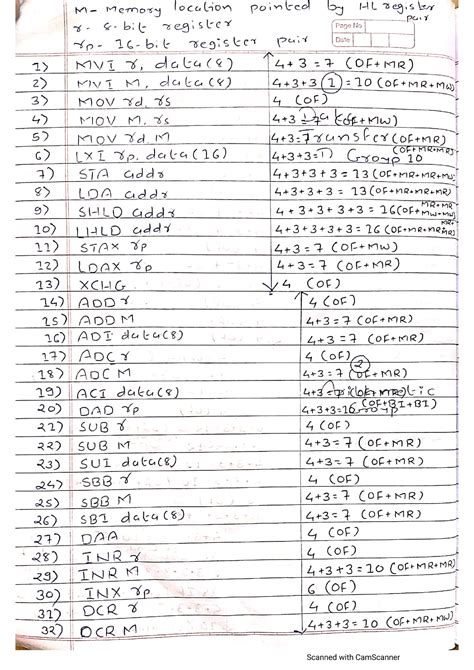 M- Memory location pointed by HL register pair
r- 8-bit register
rp- 16-bit register pair
Page No
Date
1) MVI r, data(8) 4+3=7 (OF+MR)
2) MVI M, data(8) 4+3+3 ① =10 (OF+MR+MW)
3) MOV rd, rs 4 (OF)
4) MOV M, rs 4+3=7 Data (OF+MW)
5) MOV rd, M 4+3=7 Transfer (OF+MR)
6) LXI rp, data(16) 4+3+3= Group 10 (OF+MR+MR)
7) STA addr 4+3+3+3=13 (OF+MR+MR+MW)
8) LDA addr 4+3+3+3=13 (OF+MR+MR+MR)
9) SHLD addr 4+3+3+3+3=16 (OF+MR+MR+MW+MW)
10) LHLD addr 4+3+3+3+3=16 (OF+MR+MR+MR+MR)
11) STAX rp 4+3=7 (OF+MW)
12) LDAX rp 4+3=7 (OF+MR)
13) XCHG 4 (OF)
14) ADD r 4 (OF)
15) ADD M 4+3=7 (OF+MR)
16) ADI data(8) 4+3=7 (OF+MR)
17) ADC r 4 (OF)
18) ADC M 4+3=7 ② (OF+MR)
19) ACI data(8) 4+3=7
20) DAD rp 4+3+3=10 Group (OF+BI+BI)
21) SUB r 4 (OF)
22) SUB M 4+3=7 (OF+MR)
23) SUI data(8) 4+3=7 (OF+MR)
24) SBB r 4 (OF)
25) SBB M 4+3=7 (OF+MR)
26) SBI data(8) 4+3=7 (OF+MR)
27) DAA 4 (OF)
28) INR r 4 (OF)
29) INR M 4+3+3=10 (OF+MR+MW)
30) INX rp 6 (OF)
31) DCR r 4 (OF)
32) DCR M 4+3+3=10 (OF+MR+MW)
Scanned with CamScanner